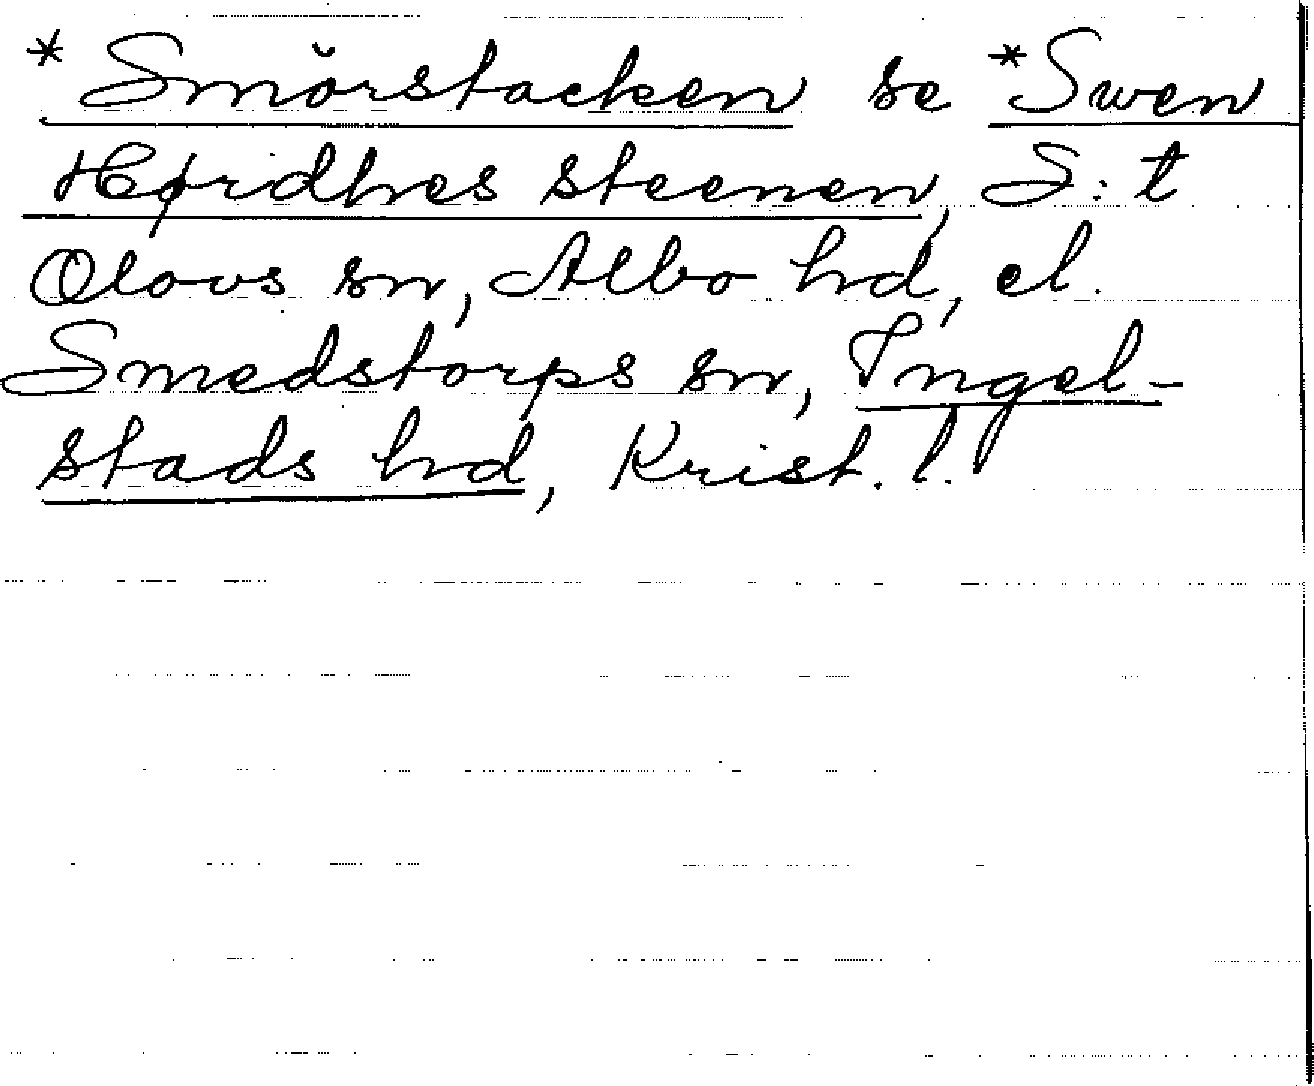 *Smörstacken se *Swen
Hørdhes steenen, S:t
Olovs sn, Albo hd, el.
Smedstorps sn, Ingel-
stads hd, Krist. l.